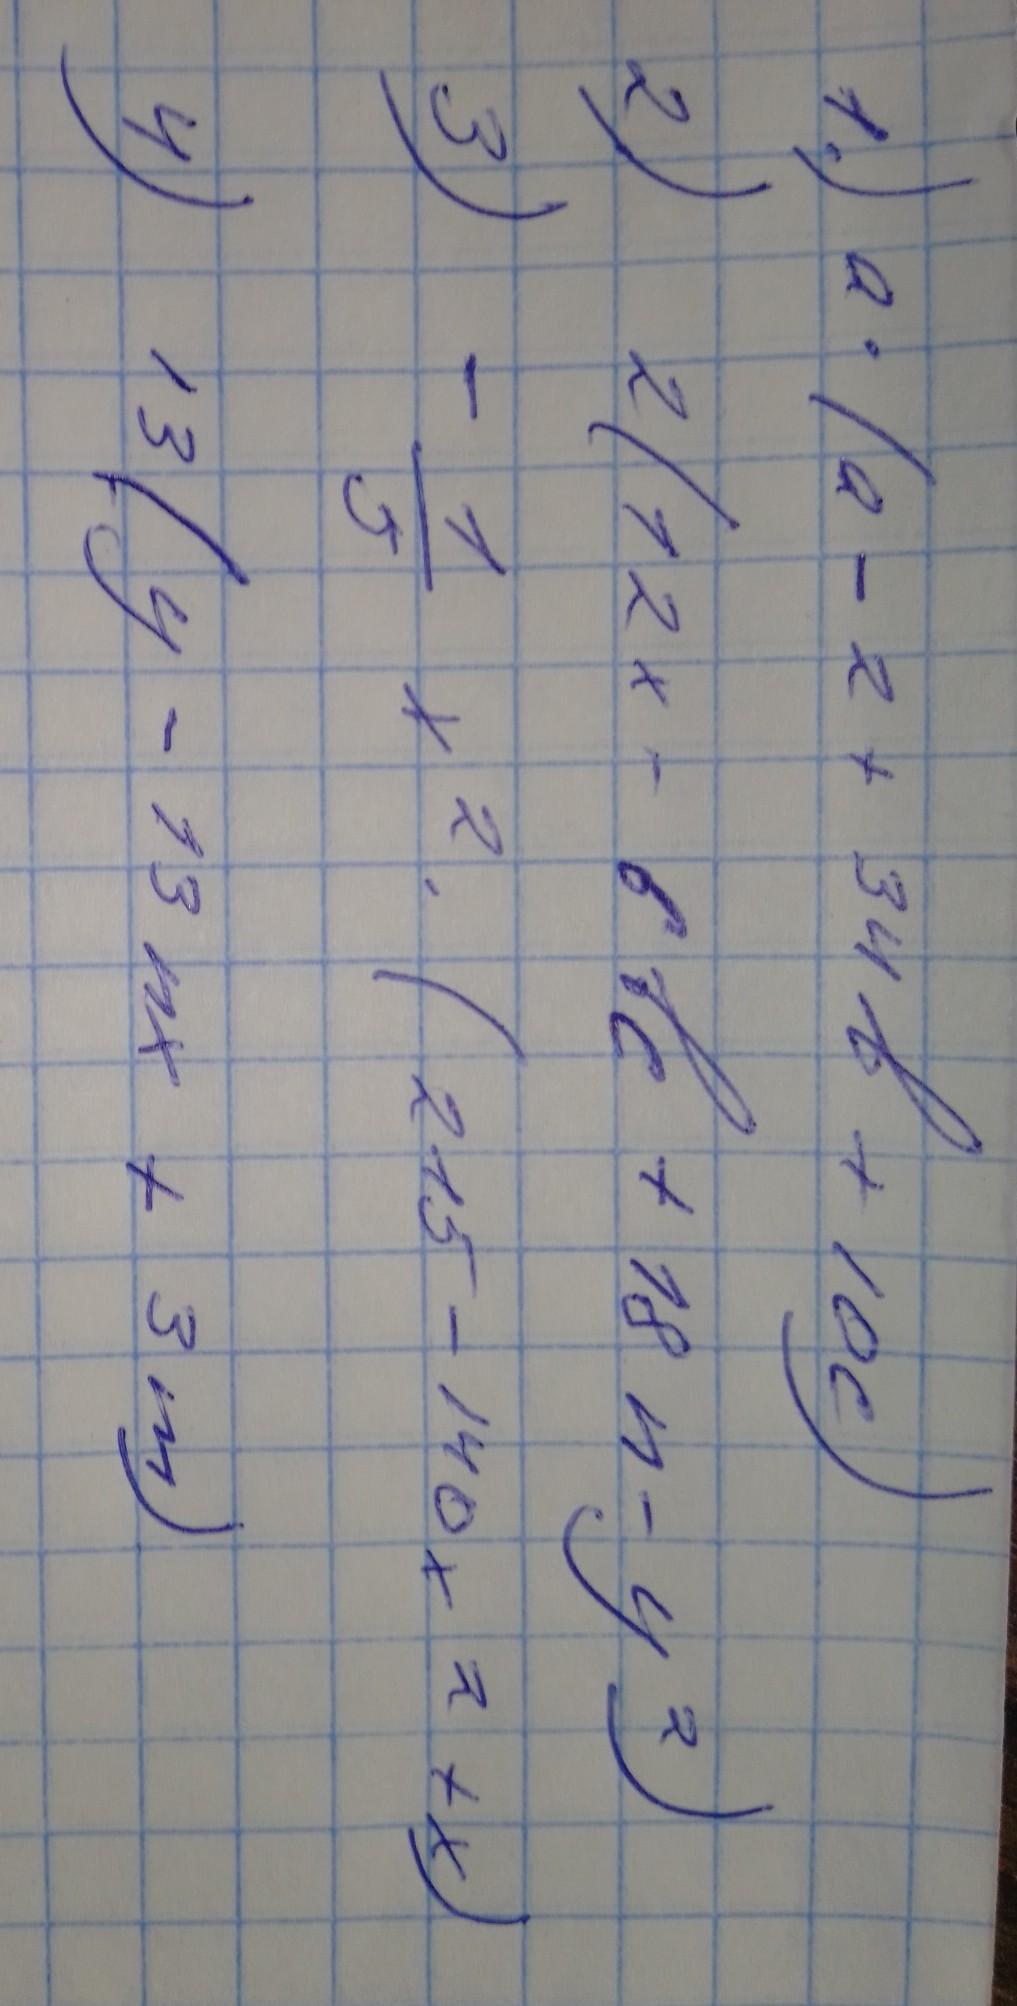 1.) a · (a - 2 + 34b + 10c)
2) 2(12x - 6bc + 18n - y²)
3) - 1/5 x² · (215 - 140x² + x)
4) 13(y - 13nx + 3m)